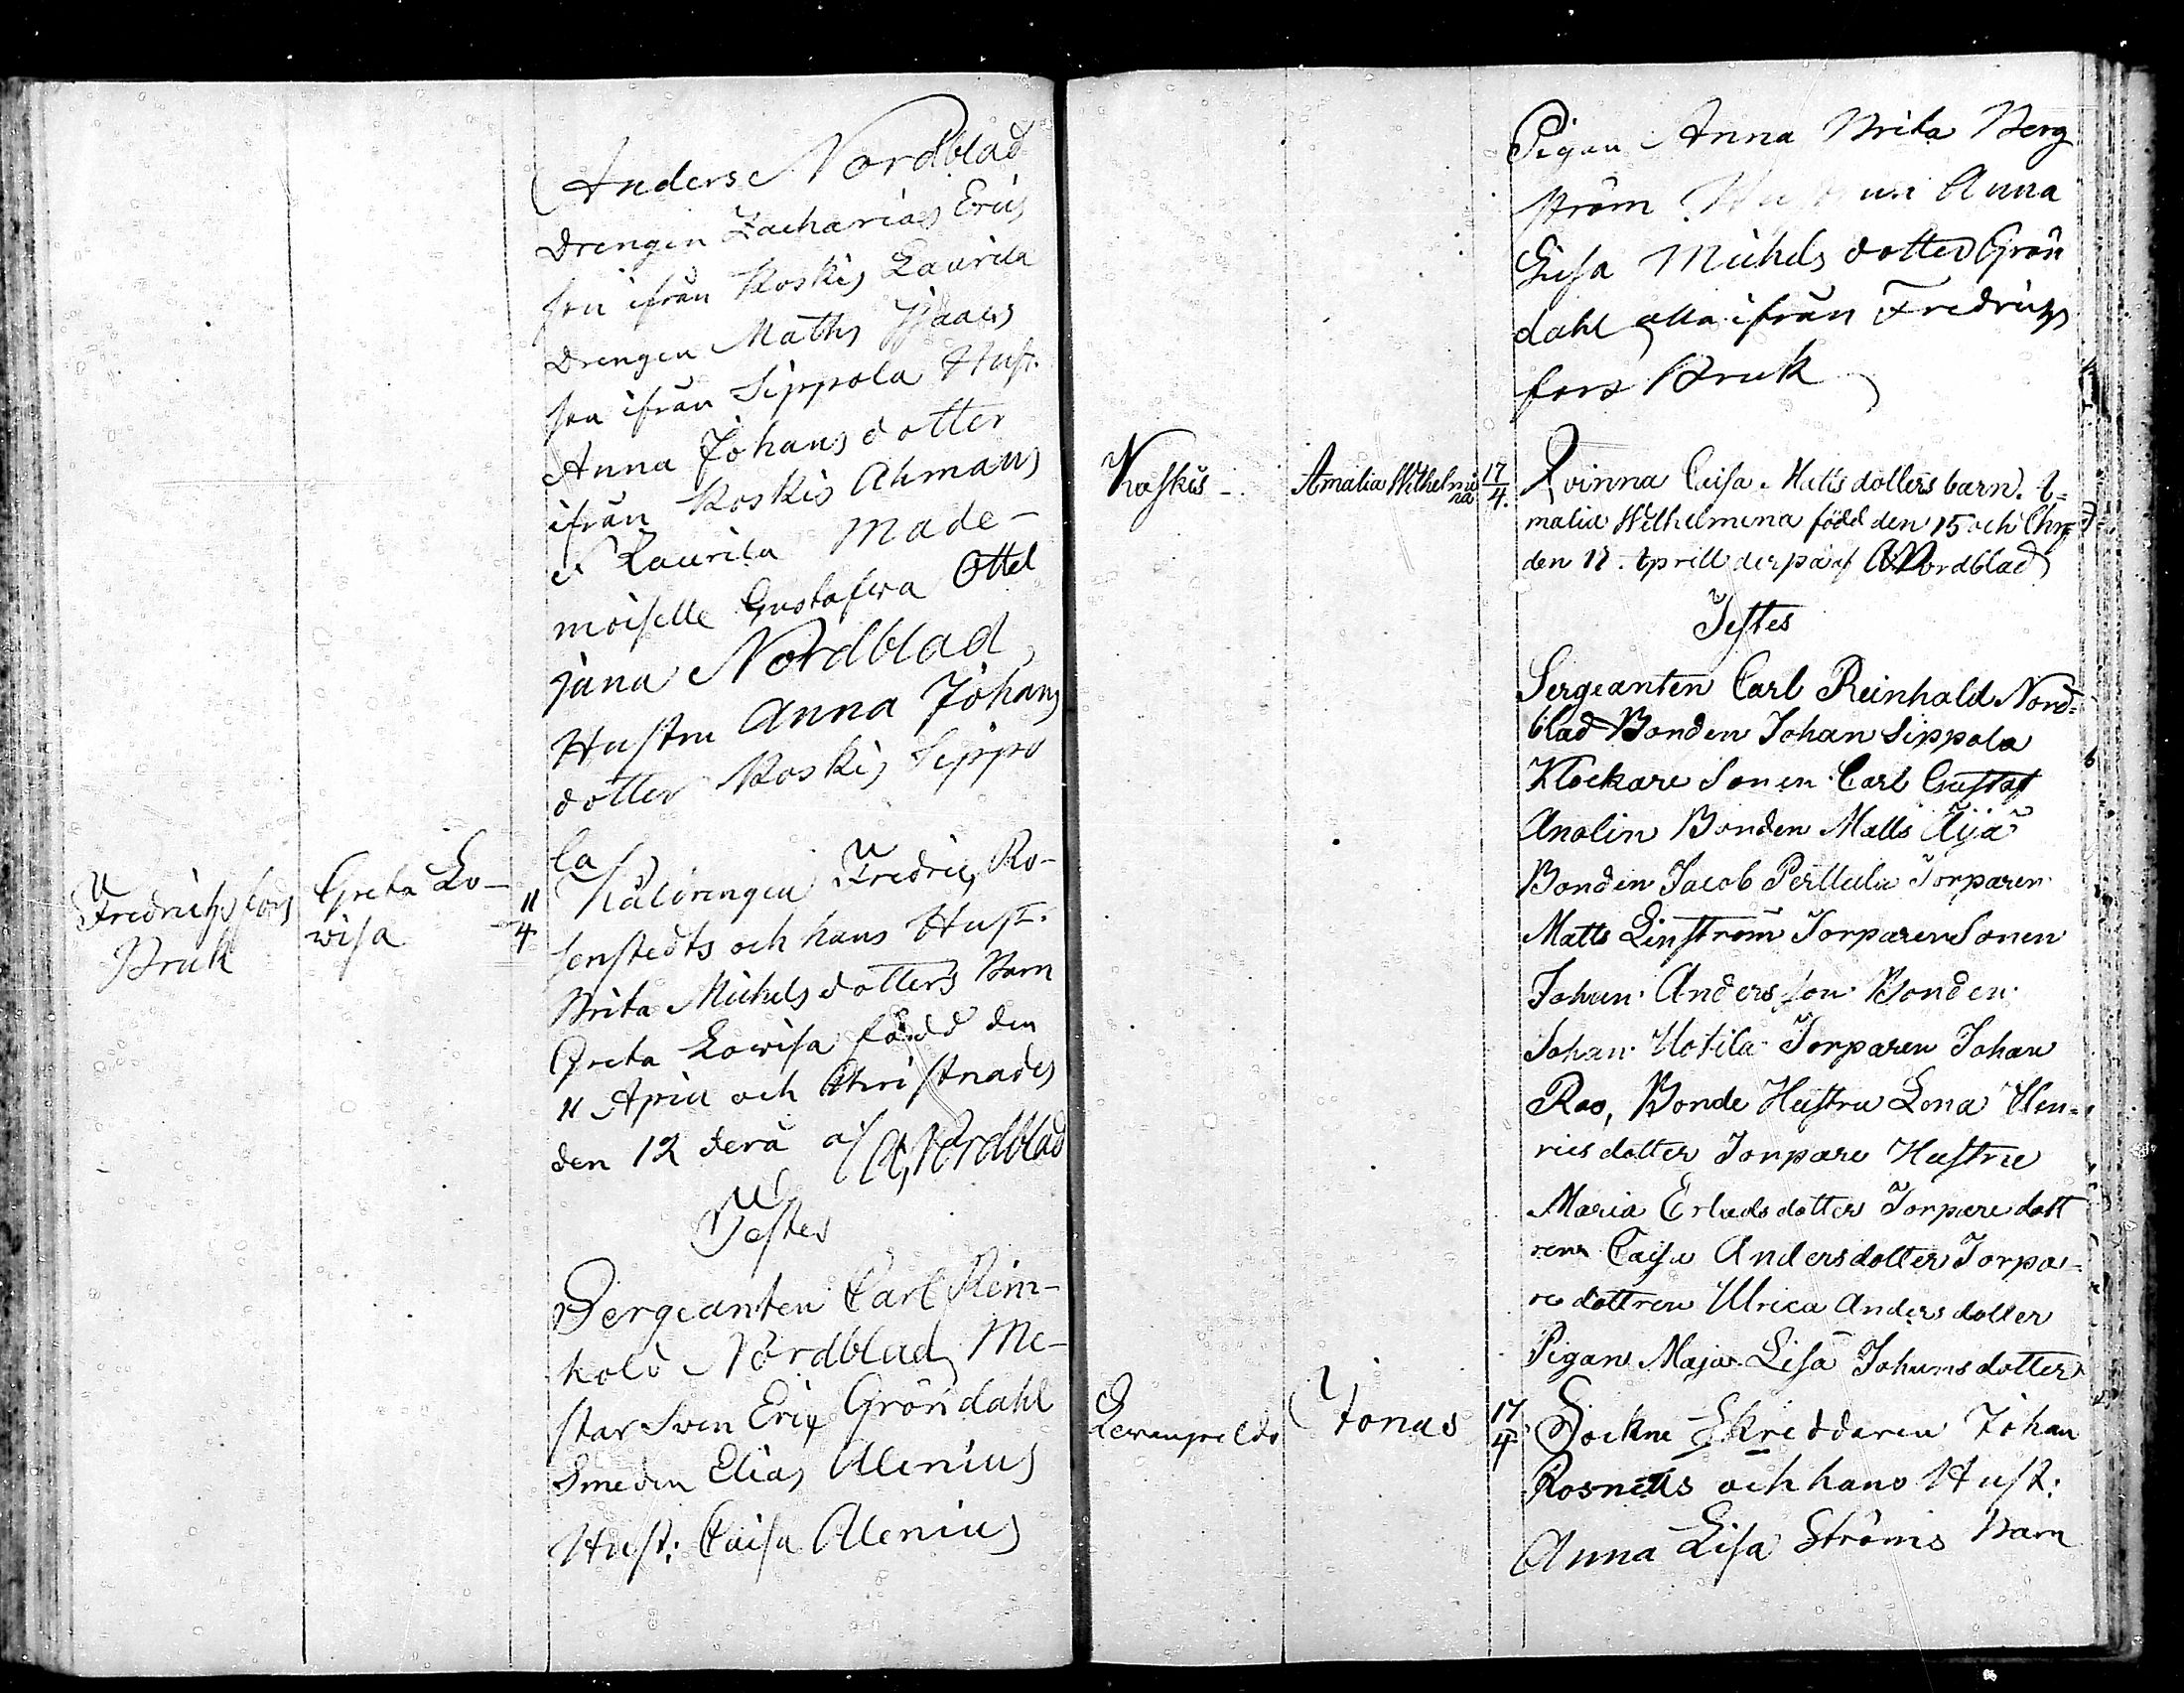 Anders Nordblad
Drengen Zacharias Erics
son ifrån Koskis Laurila
Drengen Maths Isaacs
son ifrån Sippola Hust.
Anna Johansdotter
ifrån Koskis Ahmaus
Laurila Made-
moiselle Gustafwa Ottel
jana Nordblad
Hustru Anna Johans
dotter Koskis Sippo
la
Fredrichsfors
Bruk
Greta Lo-
wisa
11
4
Kåldrengen Fredric Ro-
senstedts och hans Hust.
Brita Michelsdotters Barn
Greta Lowisa född den
11 April och Christnades
den 12 derå af A, Nordblad
Testes
Sergeanten Carl Rein-
hold Nordblad Me-
star Sven Eric Gröndahl
Smeden Elias Alenius
Hust: Caisa Alenius
Pigan Anna Brita Berg
ström Hustrun Anna
Lisa Michels dotter Grön
dahl alla ifrån Fredrichs
fors Bruk
Koskis
Amalia Wilhelmi
na
17
4.
Qvinna Caisa Matts dotters barn. A=
malia Wilhelmina född den 15 och Chr
den 17. April derpå af A Nordblad
Testes
Sergeanten Carl Reinhold Nord=
blad Bonden Johan Sippola
Klockare Sonen Carl Gustaf
Analin Bonden Matts Äijä
Bonden Jacob Perttula Torparen
Matts Linström Torparen Sonen
Johan Andersson Bonden
Johan Uotila Torparen Johan
Rao, Bonde Hustru Lena Hen=
rics dotter Torpare Hustru
Maria Erlads dotter Torpare dott
ren Caisa Andersdotter Torpa=
re dottren Ulrica Anders dotter
Pigan Maja Lisa Johansdotter
Jonas
17
4
Sockne Skreddaren Johan
Rosnells och hans Hust:
Anna Lisa Ströms Barn